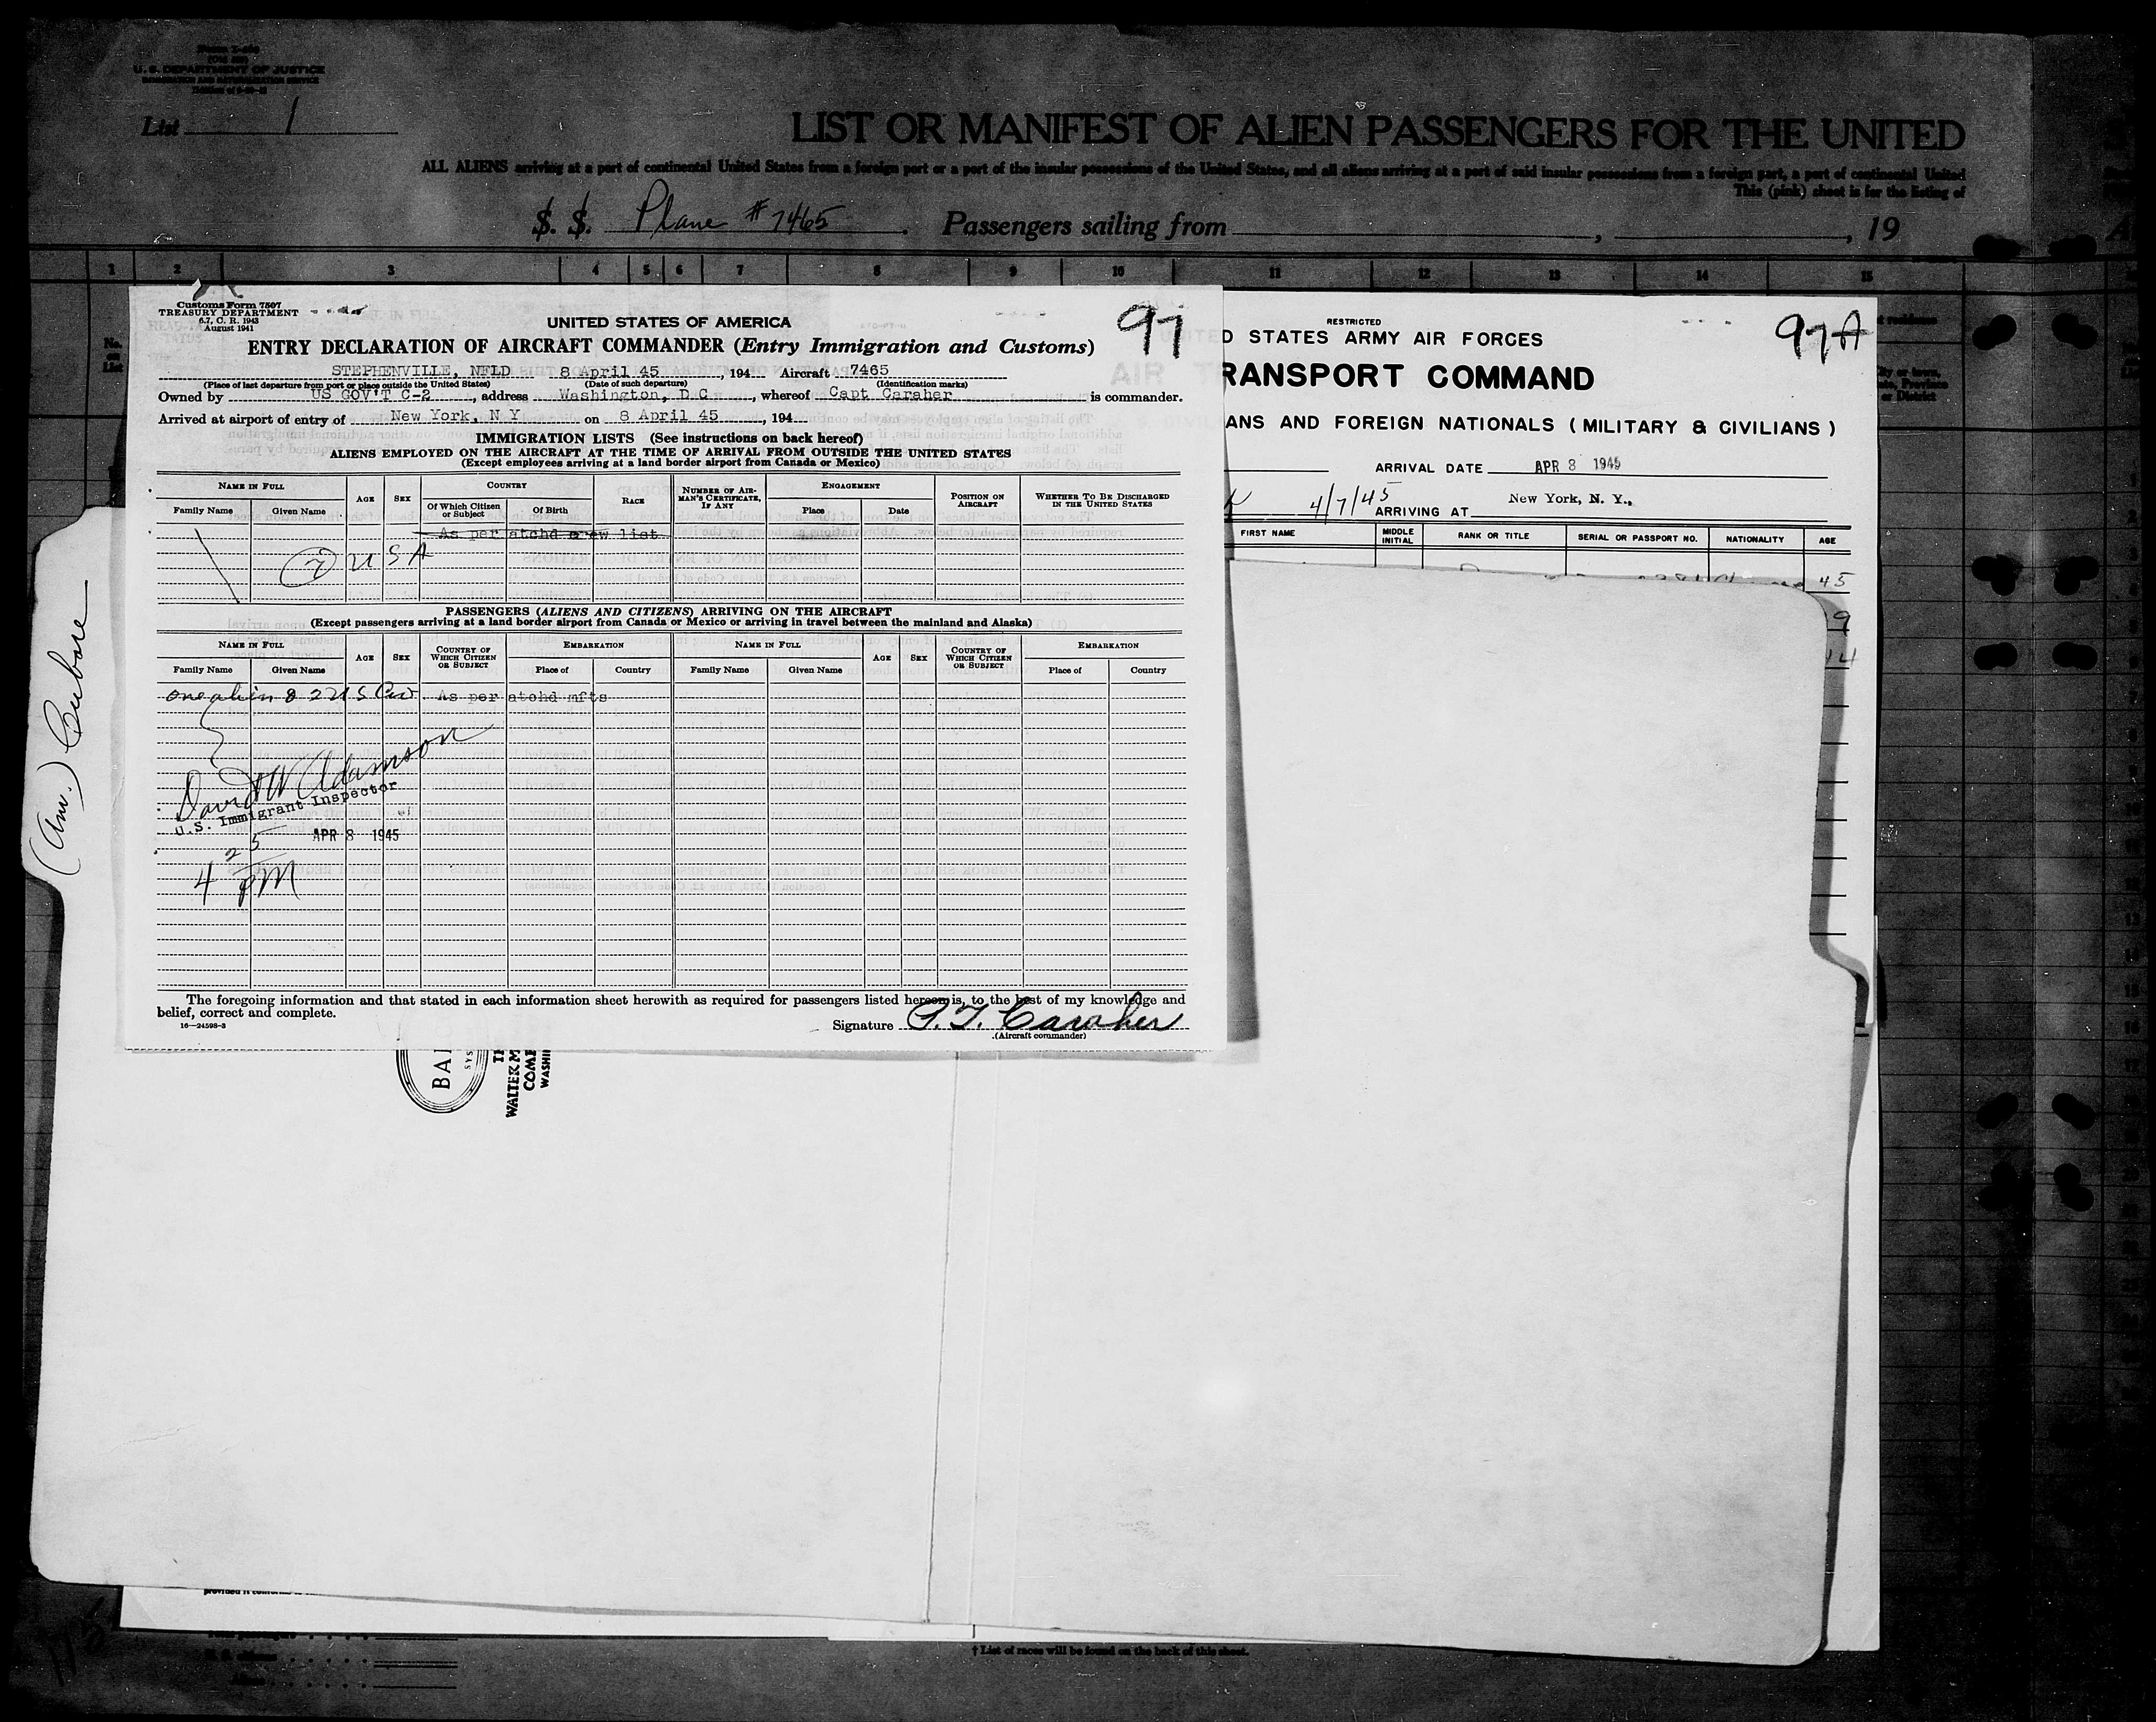 U. S. DEPARTMENT OF JUSTICE
IMMIGRATION AND NATURALIZATION SERVICE
List 1
LIST OR MANIFEST OF ALIEN PASSENGERS FOR THE UNITED
ALL ALIENS arriving at a port of continental United States from a foreign port or a port of the insular possessions of the United States, and all aliens arriving at a port of said insular possessions from a foreign port, a port of continental United
This (pink) sheet is for the listing of
S. S. Plane # 7465. Passengers sailing from , , 19
1 2 3 4 5 6 7 8 9 10 11 12 13 14 15
No. on List
Customs Form 7507
TREASURY DEPARTMENT
6.7, C. R. 1943
August 1941
97
UNITED STATES OF AMERICA
ENTRY DECLARATION OF AIRCRAFT COMMANDER (Entry Immigration and Customs)
STEPHENVILLE, NFLD 8 April 45, 194 Aircraft 7465
(Place of last departure from port or place outside the United States) (Date of such departure) (Identification marks)
Owned by US GOV'T C-2, address Washington, D C, whereof Capt Caraher is commander.
Arrived at airport of entry of New York, N Y on 8 April 45, 194
IMMIGRATION LISTS (See instructions on back hereof)
ALIENS EMPLOYED ON THE AIRCRAFT AT THE TIME OF ARRIVAL FROM OUTSIDE THE UNITED STATES
(Except employees arriving at a land border airport from Canada or Mexico)
NAME IN FULL AGE SEX COUNTRY RACE NUMBER OF AIRMAN'S CERTIFICATE, IF ANY ENGAGEMENT POSITION ON AIRCRAFT WHETHER TO BE DISCHARGED IN THE UNITED STATES
Family Name Given Name Of Which Citizen or Subject Of Birth Place Date
As per atchd crew list
7 U S A
PASSENGERS (ALIENS AND CITIZENS) ARRIVING ON THE AIRCRAFT
(Except passengers arriving at a land border airport from Canada or Mexico or arriving in travel between the mainland and Alaska)
NAME IN FULL AGE SEX COUNTRY OF WHICH CITIZEN OR SUBJECT EMBARKATION NAME IN FULL AGE SEX COUNTRY OF WHICH CITIZEN OR SUBJECT EMBARKATION
Family Name Given Name Place of Country Family Name Given Name Place of Country
one alien & 22 U S As per atchd mfts
David W Adamson
U.S. Immigrant Inspector
APR 8 1945
4 25 PM
The foregoing information and that stated in each information sheet herewith as required for passengers listed hereon is, to the best of my knowledge and
belief, correct and complete.
16—24598-3
Signature P. T. Caraher
(Aircraft commander)
RESTRICTED
97A
D STATES ARMY AIR FORCES
AIR TRANSPORT COMMAND
ANS AND FOREIGN NATIONALS ( MILITARY & CIVILIANS )
ARRIVAL DATE APR 8 1945
4/7/45
ARRIVING AT New York, N. Y.,
FIRST NAME MIDDLE INITIAL RANK OR TITLE SERIAL OR PASSPORT NO. NATIONALITY AGE
45
9
44
BA
SYS
WALTER M
COM
WASHI
† List of races will be found on the back of this sheet.